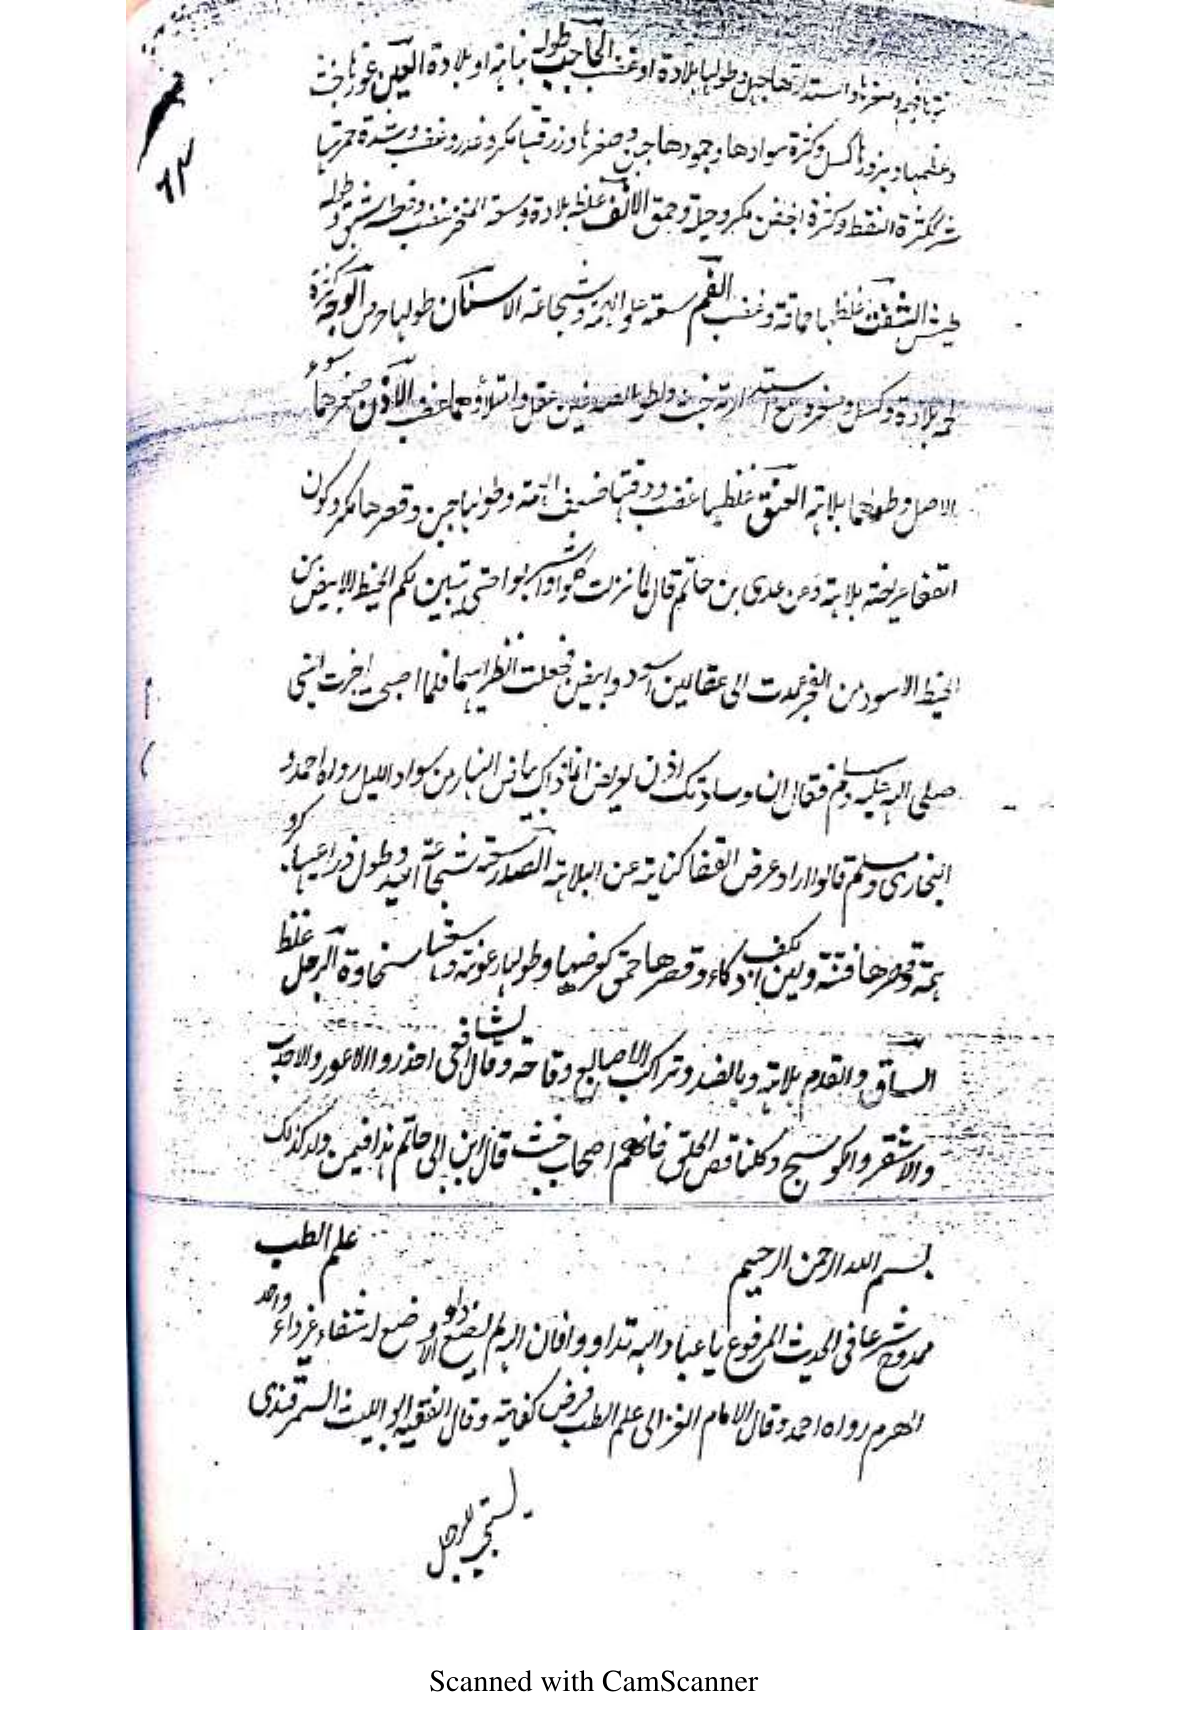 واستدارتها جهل وطولها بلادة او غضب الحاجب طوله نيابة او بلادة العين غورها خبث
وعظمها وبروزها كسل وكثرة سوادها وجمودها جبن وصغرها وزرقتها مكر وغدر وغضب وشدة حمرتها
شر لكثرة النقط وكثرة اجفن مكر وحيلة وحمق الانف غلظه بلادة وسعة المنخر غضب طوله
طيش الشفة غلظها حماقة وغضب الفم سعته علو الهمة وشجاعة الاسنان طولها حرص الوجه كثرة
لحمه بلادة وكسل وصغره مع استدارته خبث وطول الصدغين عقل وامتلاؤهما غضب الاذن صغرهما سوء
الاصل وطولهما بلاهة العنق غلظها غضب ودقتها ضعف الهمة وطولها جبن وقصرها مكر وكون
القفا عريضة بلاهة وعن عدى بن حاتم قال لما نزلت كلوا واشربوا حتى يتبين لكم الخيط الابيض من
الخيط الاسود من الفجر عمدت الى عقالين اسود وابيض فجعلت انظر اليهما فلما اصبحت اخبرت النبى
صلى الله عليه وسلم فقال ان وسادتك اذن لعريض انما ذاك بياض النهار من سواد الليل رواه احمد و
البخارى ومسلم قالوا اراد عرض القفا كناية عن البلاهة الصدر سعته شجاعة اليد وطول ذراعيها كرم
همة وقصرها فتنة ولين الكف ذكاء وقصرها حمق كعرضها وطولها رعونة سخاوة الرجل غلظ
الساق والقدم بلاهة وبالضد وتراكب الاصابع وقاحة وقال الشافعى احذروا الاعور والاحدب
والاشقر والكوسج وكل ناقص الخلق فانهم اصحاب خبث قال ابن ابى حاتم هذا فيمن ولد كذلك
بسم الله الرحمن الرحيم علم الطب
ممدوح شرعا فى الحديث المرفوع يا عباد الله تداووا فان الله لم يضع داء الا وضع له شفاء غير داء واحد
الهرم رواه احمد وقال الامام الغزالى علم الطب فرض كفاية وقال الفقيه ابو الليث السمرقندى
يستحب للرجل
Scanned with CamScanner